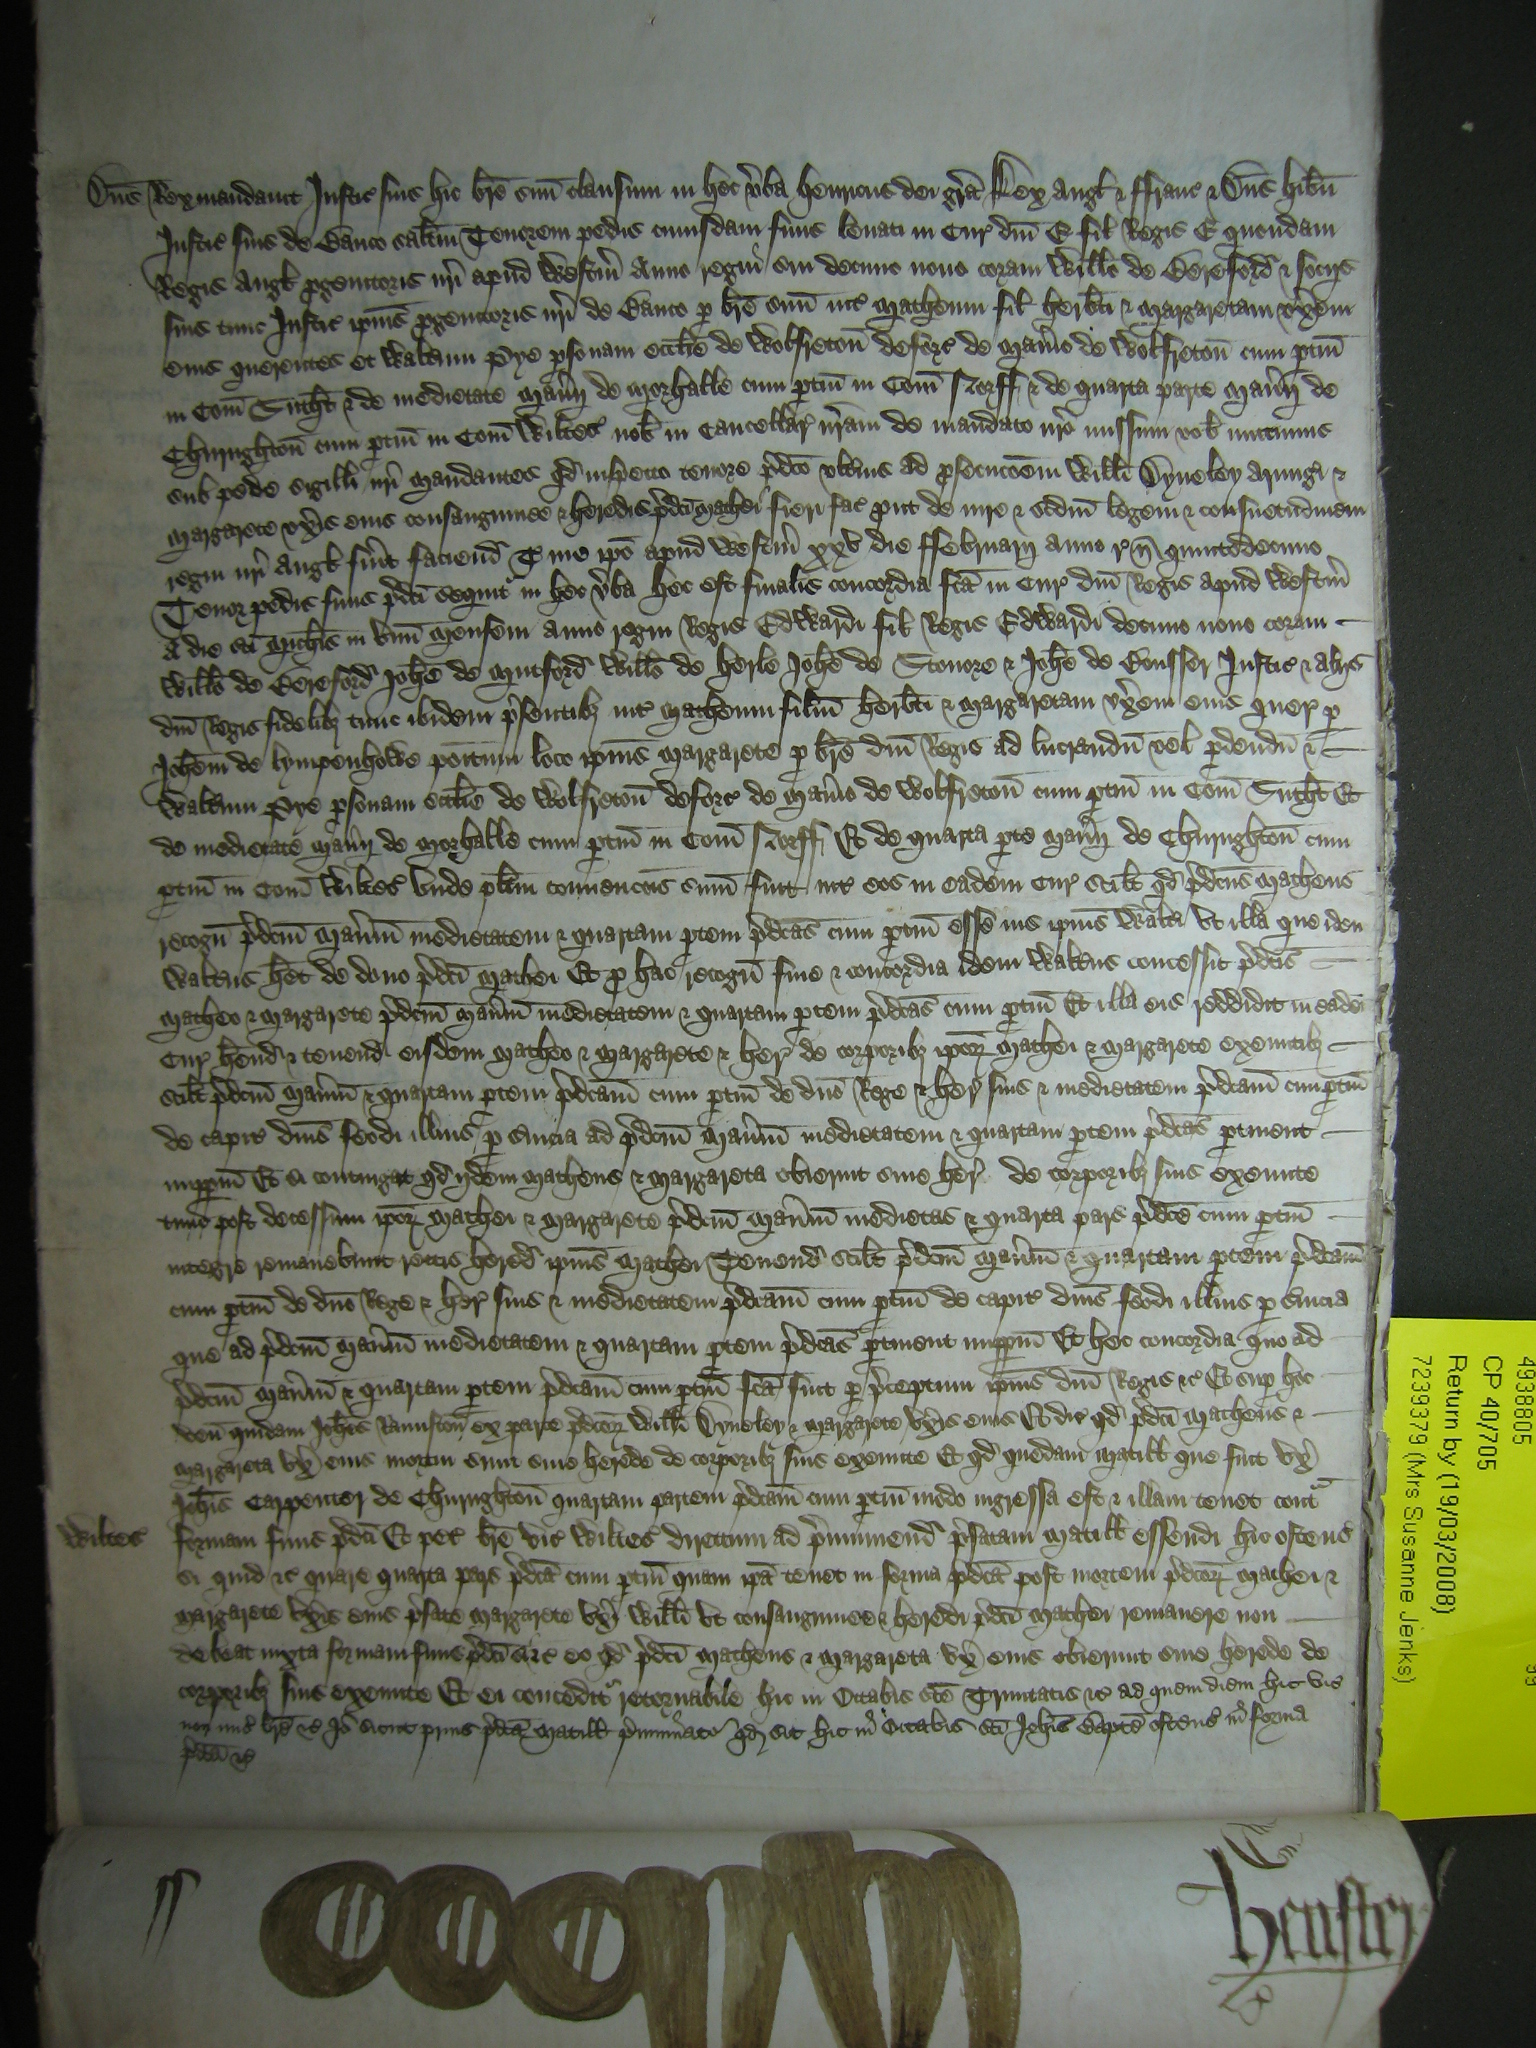 Dn̄s Rex mandavit Justic̄ suis hic br̄e suū clausum in hec v̄ba Henricus dei gr̄a Rex Angl̄ & ffranc̄ & Dn̄s Hib̄n
Justic̄ suis de Banco sal̄tm Tenorem pedis cuiusdam finis levati in Cur̄ dn̄i E fil̄ Regis E quondam
Regis Angl̄ p̱genitoris nr̄i apud Westm̄ Anno regni sui decimo nono coram Will̄o de Bereford̄ & sociis
suis tunc Justic̄ ip̄ius p̱genitoris nr̄i de Banco p̱ br̄e suū int̄ Matheum fil̄ Herb̄ti & Margaretam vx̄em
eius querentes et Walt̄um Pye p̱sonam eccl̄ie de Wolfreton̄ deforc̄ de Man̄io de Wolfreton̄ cum p̱tin̄
in Com̄ Suth̄t & de medietate Man̄ij de Morhalle cum p̱tin̄ in Com̄ Norff̄ & de quarta parte Man̄ij de
Chirughton̄ cum p̱tin̄ in Com̄ Wiltes̄ nob̄ in Cancellar̄ nr̄am de mandato nr̄o missum vob̄ mittimus
sub pede sigilli nr̄i Mandantes qd̄ inspecto tenore p̄dc̄o vlt̄ius ad p̱secuc̄oem Will̄i Dyneley Armigi &
Margarete vx̄is eius consanguinee & heredis p̄dc̄i Mathei fieri fac̄ p̱ut de iure & sc̄dm̄ legem & consuetudinem
regni nr̄i Angl̄ fu̅it faciend̄ T me ip̄o apud Westm̄ xxv die ffebruarij Anno r̄ n̄ quintodecimo
Tenor pedis finis p̄dc̄i sequit̄ in hec v̄ba Hec est finalis concordia fc̄a in Cur̄ dn̄i Regis apud Westm̄
A die sc̄i Mich̄is in vnū Mensem Anno regni Regis Edwardi fil̄ Regis Edwardi decimo nono coram
Will̄o de Bereford̄ Joh̄e de Mutford̄ Will̄o de Herle Joh̄e de Stonore & Joh̄e de Bousser Justic̄ & aliis
dn̄i Regis fidelib; tunc ibidem p̄sentib; int̄ Matheum filiū Herb̄ti & Margaretam vx̄em eius quer̄ p̱
Joh̄em de Lympenhowe poītum loco ip̄ius Margarete p̱ br̄e dn̄i Regis ad lucrandū vel p̱dendū &
Walt̄um Pye p̱sonam eccl̄ie de Wolfreton̄ deforc̄ de Man̄io de Wolfreton̄ cum p̱tin̄ in Com̄ Suth̄t Et
de medietate Man̄ij de Morhalle cum p̱tin̄ in Com̄ Norff̄ Et de quarta p̱te Man̄ij de Chirughton̄ cum
p̱tin̄ in Com̄ Wiltes̄ Vnde pl̄itm convenc̄ois sum̄ fuit int̄ eos in eadem Cur̄ Scilt̄ qd̄ p̄dc̄us Matheus
recogn̄ p̄dc̄m Man̄iū medietatem & quartam p̱tem p̄dc̄as cum p̱tin̄ esse ius ip̄ius Walt̄i Vt illa que idem
Walt̄us h̄et de dono p̄dc̄i Mathei Et p̱ hac recogn̄ fine & concordia idem Walt̄us concessit p̄dc̄is
Matheo & Margarete p̄dc̄m Man̄iū medietatem & quartam p̱tem p̄dc̄as cum p̱tin̄ Et illa eis reddidit in eadem
Cur̄ h̄end̄ & tenend̄ eisdem Matheo & Margarete & her̄ de corporib; ip̄or̄ Mathei & Margarete exeuntib;
scilt̄ p̄dc̄m Man̄iū & quartam p̱tem p̄dc̄am cum p̱tin̄ de dn̄o Rege & her̄ suis & medietatem p̄dc̄am cum p̱tin̄
de capit̄ dn̄is feodi illius p̱ s̄uicia ad p̄dc̄m Man̄iū medietatem & quartam p̱tem p̄dc̄as p̱tinent
imp̱p̱m Et si contingat qd̄ ijdem Matheus & Margareta obierint sine her̄ de corporib; suis exeunte
tunc post decessum ip̄or̄ Mathei & Margarete p̄dc̄m Man̄iū medietas & quarta pars p̄dc̄e cum p̱tin̄
integre remanebunt rectis hered̄ ip̄ius Mathei Tenend̄ scilt̄ p̄dc̄m Man̄iū & quartam p̱tem p̄dc̄am
cum p̱tin̄ de dn̄o Rege & her̄ suis & medietatem p̄dc̄am cum p̱tin̄ de capit̄ dn̄is feodi illius p̱ s̄uicia
que ad p̄dc̄m Man̄iū medietatem & quartam p̱tem p̄dc̄as p̱tinent imp̱p̱m Et hec concordia quo ad
p̄dc̄m Man̄iū & quartam p̱tem p̄dc̄am cum p̱tin̄ fc̄a fuit p̱ p̄ceptum ip̄ius dn̄i Regis &c̄ Et sup̱ hoc
ven̄ quidam Joh̄es Ramston̄ ex parte p̄dc̄or̄ Will̄i Dyneley & Margarete vx̄is eius Et dic̄ qd̄ p̄dc̄i Matheus &
Margareta vx̄ eius mortui sunt sine herede de corporib; suis exeunte Et qd̄ quedam Matill̄ que fuit vx̄
Joh̄is Carpenter de Chirughton̄ quartam partem p̄dc̄am cum p̱tin̄ modo ingressa est & illam tenet cont̄
Wiltes̄ formam finis p̄dc̄i Et pet̄ br̄e vic̄ Wiltes̄ directum ad p̄muniend̄ p̄fatam Matill̄ essendi hic ostens̄
si quid &c̄ quare quarta pars p̄dc̄a cum p̱tin̄ quam ip̄a tenet in forma p̄dc̄a post mortem p̄dc̄or̄ Mathei &
Margarete vx̄is eius p̄fate Margarete vx̄i Will̄i Vt consanguinee & heredi p̄dc̄i Mathei remanere non
debeat iuxta formam finis p̄dc̄i si &c̄ eo qd̄ p̄dc̄i Matheus & Margareta vx̄ eius obierunt sine herede de
corporib; suis exeunte Et ei conceditr̄ retornabile hic in Octabis sc̄e Trinitatis &c̄ ad quem diem hic vic̄
non mis̄ br̄e &c̄ Jō sicut prius p̄dc̄a Matill̄ p̄muniat̄ qd̄ sit hic in Octabis sc̄i Joh̄is Bapt̄e ostens̄ in forma
p̄dc̄a &c̄
4938805
CP 40/705
Return by (19/03/2008)
7239379 (Mrs Susanne Jenks)